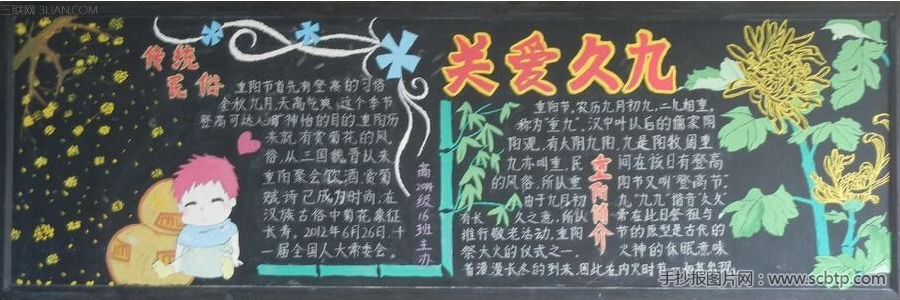 三联网 3LIAN.COM
传统
民俗
重阳节首先有登高的习俗
金秋九月,天高气爽,这个季节
登高可达心旷神怡的目的,重阳历
来就有赏菊花的风
俗,从三国魏晋以来
重阳聚会饮酒,赏菊
赋诗已成为时尚,在
汉族古俗中菊花象征
长寿。2012年6月26日,十
一届全国人大常委会。
班主办
关爱久九
重阳节,农历九月初九,二九相重,
称为"重九",汉中叶以后的儒家阴
阳观,有六阴九阳,九是阳数固重
九亦叫重,民间在该日有登高
的风俗,所以重阳节又叫"登高节"。
由于九月初九"九九"谐音"久久"
有长久之意,所以常在此日祭祖与
推行敬老活动,重阳节的原型是古代的
祭大火的仪式之一,火神的休眠意味
着漫漫长冬的到来,因此,在内火时
重阳简介
手抄报图片网:www.scbtp.com